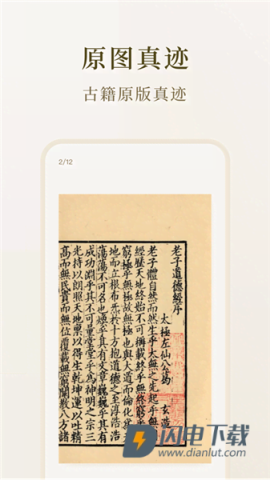 原图真迹
古籍原版真迹
2/12
老子道德經序
太極左仙公葛 玄造
老子體自然而然生乎太無之先起乎無因
經歷天地終始不可稱載終乎無終
窮乎無窮極乎無極故無極也與大道而倫化
為天地而立根布氣於十方抱道德之至淳浩浩
蕩蕩不可名也煥乎其有文章巍巍乎其有
成功淵乎其不可量堂堂乎為神明之宗三
光持以朗照天地稟以得生乾坤運以吐精
高而無民貴而無位覆載無窮闡教八方諸
闪电下载
www.dianlut.com